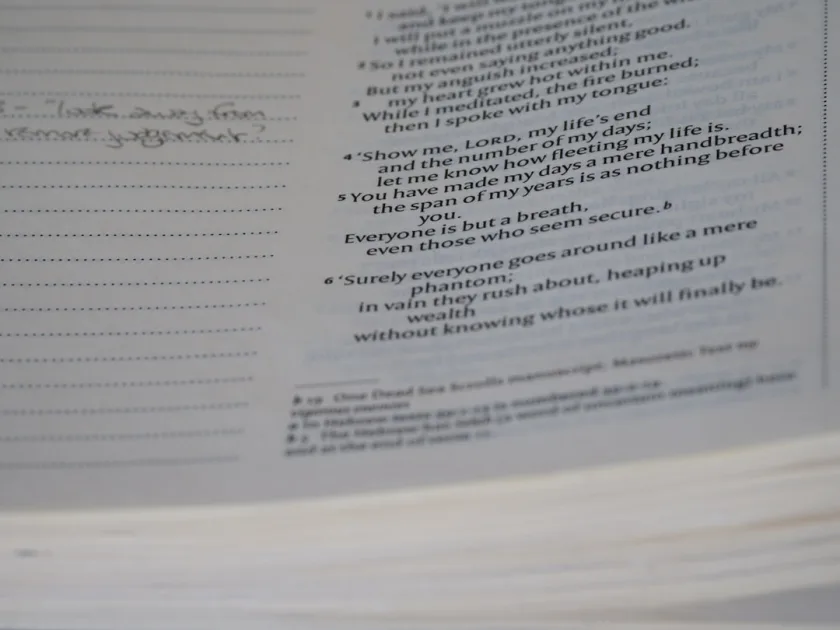 ¹ I said, 'I will
and keep my tongue
I will put a muzzle on my
while in the presence of the
² So I remained utterly silent,
not even saying anything good.
But my anguish increased;
³ my heart grew hot within me.
While I meditated, the fire burned;
then I spoke with my tongue:
⁴ 'Show me, LORD, my life's end
and the number of my days;
let me know how fleeting my life is.
⁵ You have made my days a mere handbreadth;
the span of my years is as nothing before
you.
Everyone is but a breath,
even those who seem secure. b
⁶ 'Surely everyone goes around like a mere
phantom;
in vain they rush about, heaping up
wealth
without knowing whose it will finally be.
One Dead Sea Scrolls manuscript; Masoretic Text
In Hebrew texts is numbered
The Hebrew has
- "look away from
remove judgement?